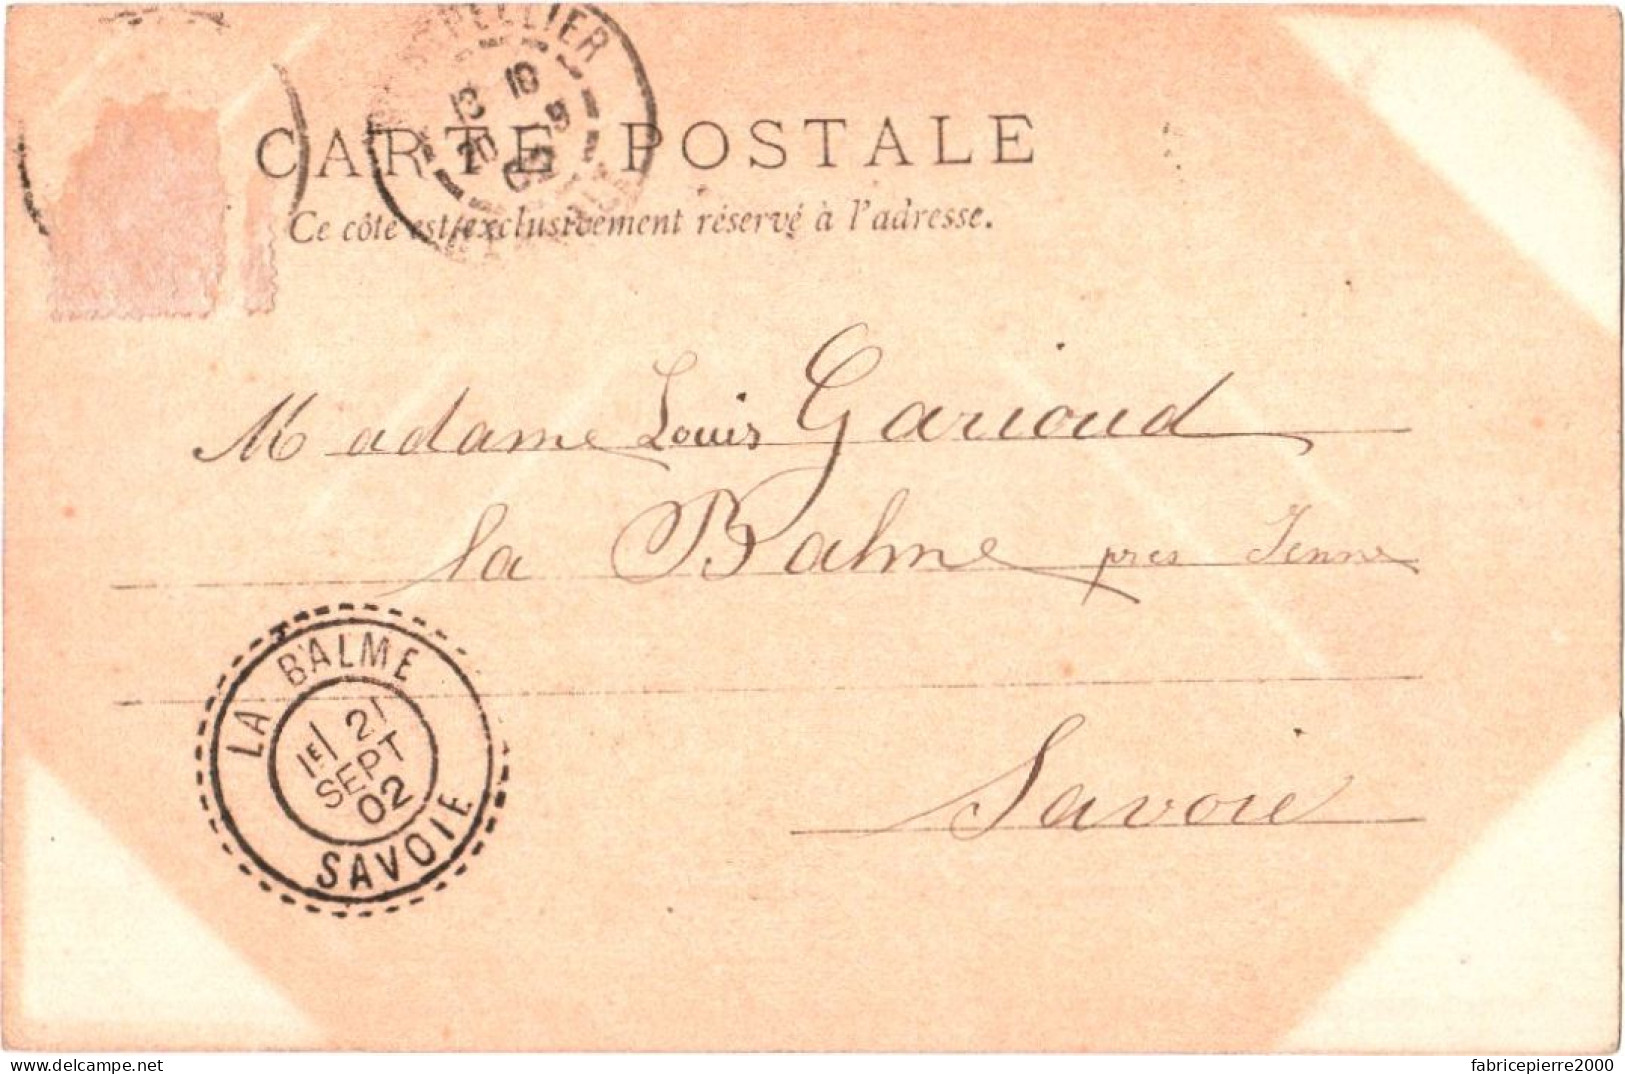 PELLIER
10
20
02
CARTE POSTALE
Ce côté est exclusivement réservé à l'adresse.
Madame Louis Garioud
la Balme près Yenne
Savoie
LA BALME
1E/ 21
SEPT
02
SAVOIE
fabricepierre2000